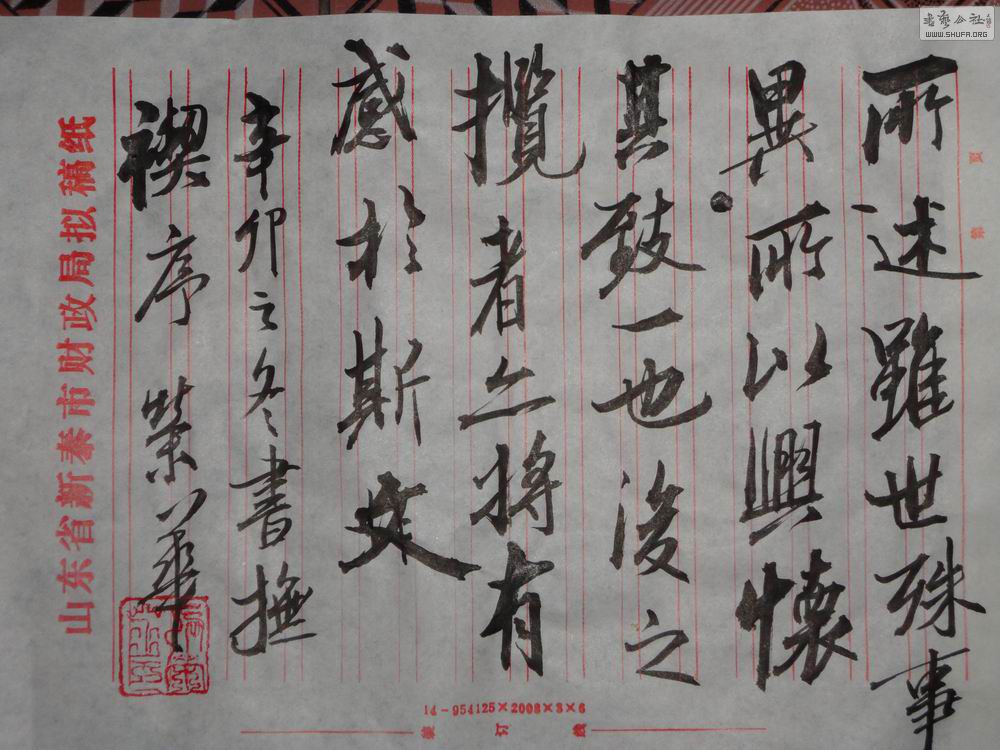 書藝公社
WWW.SHUFA.ORG
第 页
所述雖世殊事
異所以興懷
其致一也後之
攬者亦將有
感於斯文
辛卯之冬書撫
禊序 榮華
山东省新泰市财政局拟稿纸
14-954125×2008×3×6
装 订 线